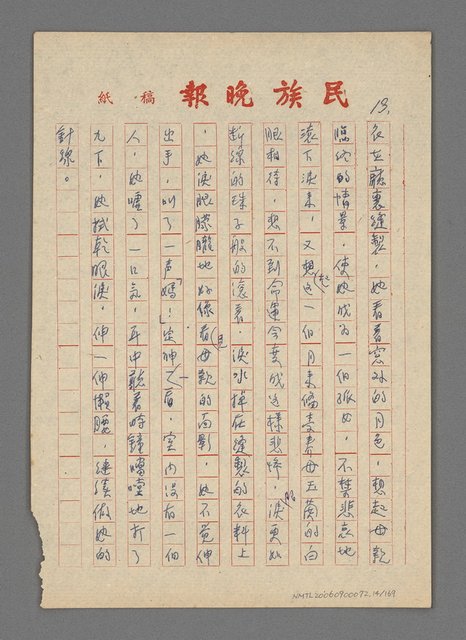 民族晚報
稿紙
13.
夜在廳裏縫製,她看着窗外的月色,想起母親
臨終的情景,使她成為一個孤女,不禁悲哀地
滾下淚來,又想起這一個月來備受養母玉蘭的白
眼相待,想不到命運會變成這樣悲慘,淚更如
斷線的珠子般的滾着,淚水掉在縫製的衣料上
,她淚眼矇矓地好像看見母親的面影,她不覺伸
出手,叫了一声「媽!」定神之一看,室内沒有一個
人,她嘆了一口氣,耳中聽着時鐘噹噹地打了
九下,她拭乾眼淚,伸一伸懶腰,繼續做她的
針線。
NMTL20060900072.14/169